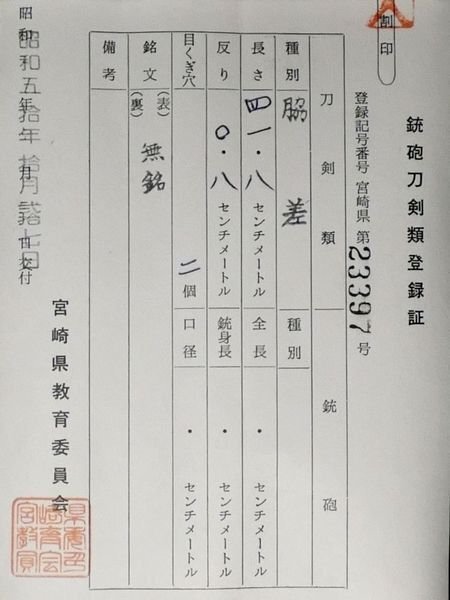 銃砲刀剣類登録証
割印
登録記号番号 宮崎県 第23397号
刀剣類 銃砲
種別 脇差 種別
長さ 四一・八センチメートル 全長 ・ センチメートル
反り 〇・八センチメートル 銃身長 ・ センチメートル
目くぎ穴 二個 口径 ・ センチメートル
銘文 (表) 無銘
(裏)
備考
昭和 年 月 日交付
昭和五拾年拾月弐拾七日
宮崎県教育委員会